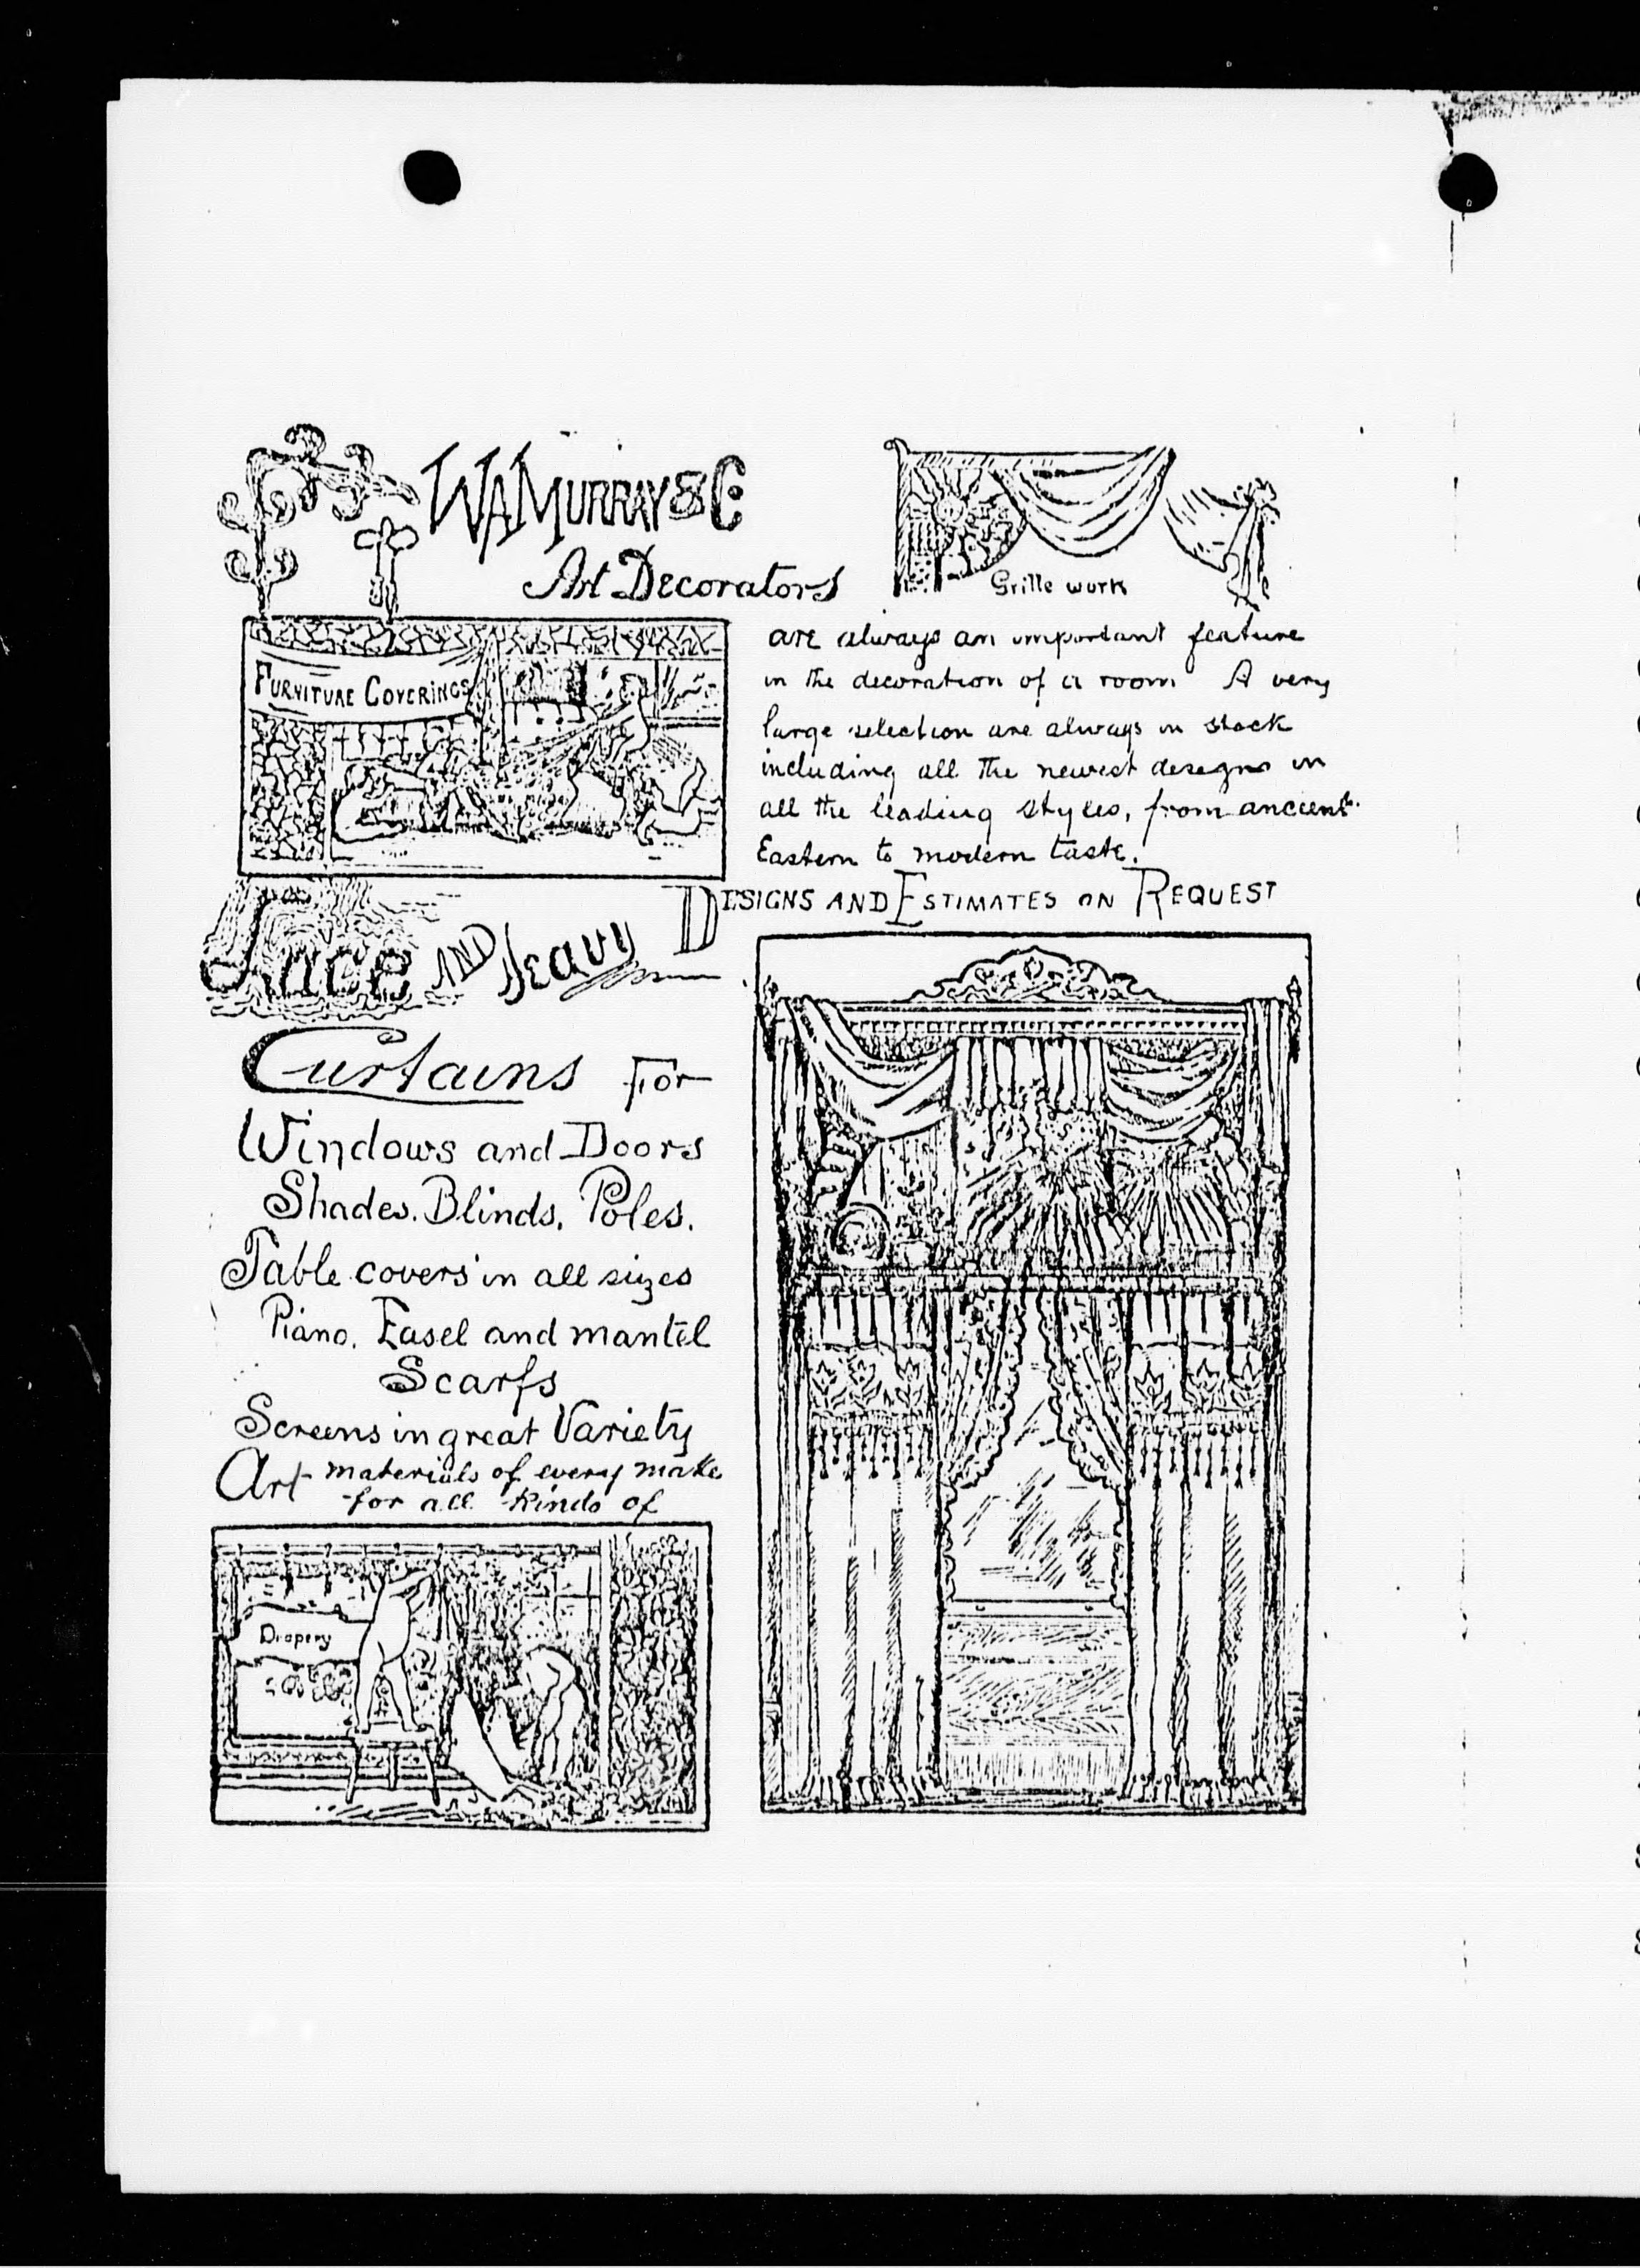 W.A. Murray & Co.
Art Decorators
Furniture Coverings
Lace and Heavy
Curtains For
Windows and Doors
Shades. Blinds. Poles.
Table covers in all sizes
Piano. Easel and mantel
Scarfs
Screens in great Variety
Art materials of every make
for all kinds of
Drapery
Grille work
are always an important feature
in the decoration of a room A very
large selection are always in stock
including all the newest designs in
all the leading styles, from ancient
Eastern to modern taste.
Designs and Estimates on Request